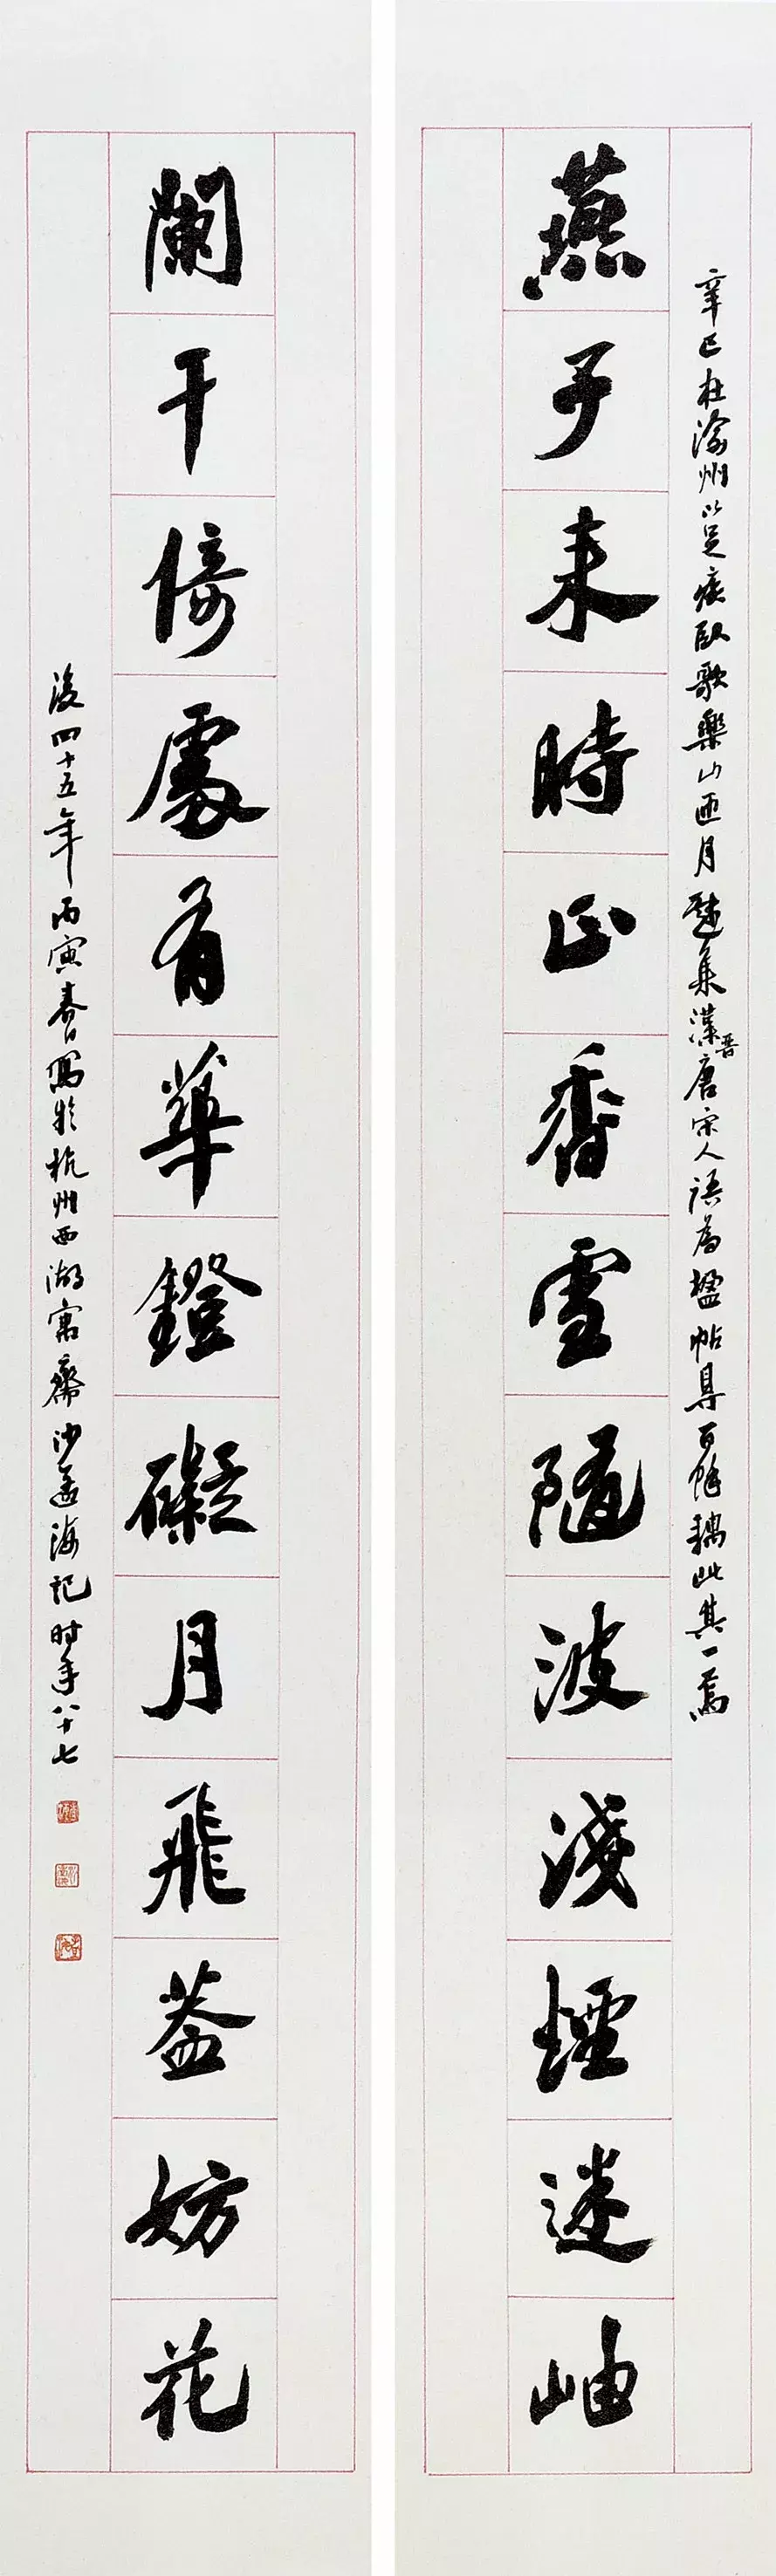 辛巳在渝州以足疾臥歌樂山匝月集漢晉唐宋人語為楹帖得百餘耦此其一焉
燕子來時正香雪隨波淺煙迷岫
闌干倚處有華鐙礙月飛蓋妨花
後四十五年丙寅春日寫於杭州西湖寓齋沙孟海記時年八十七